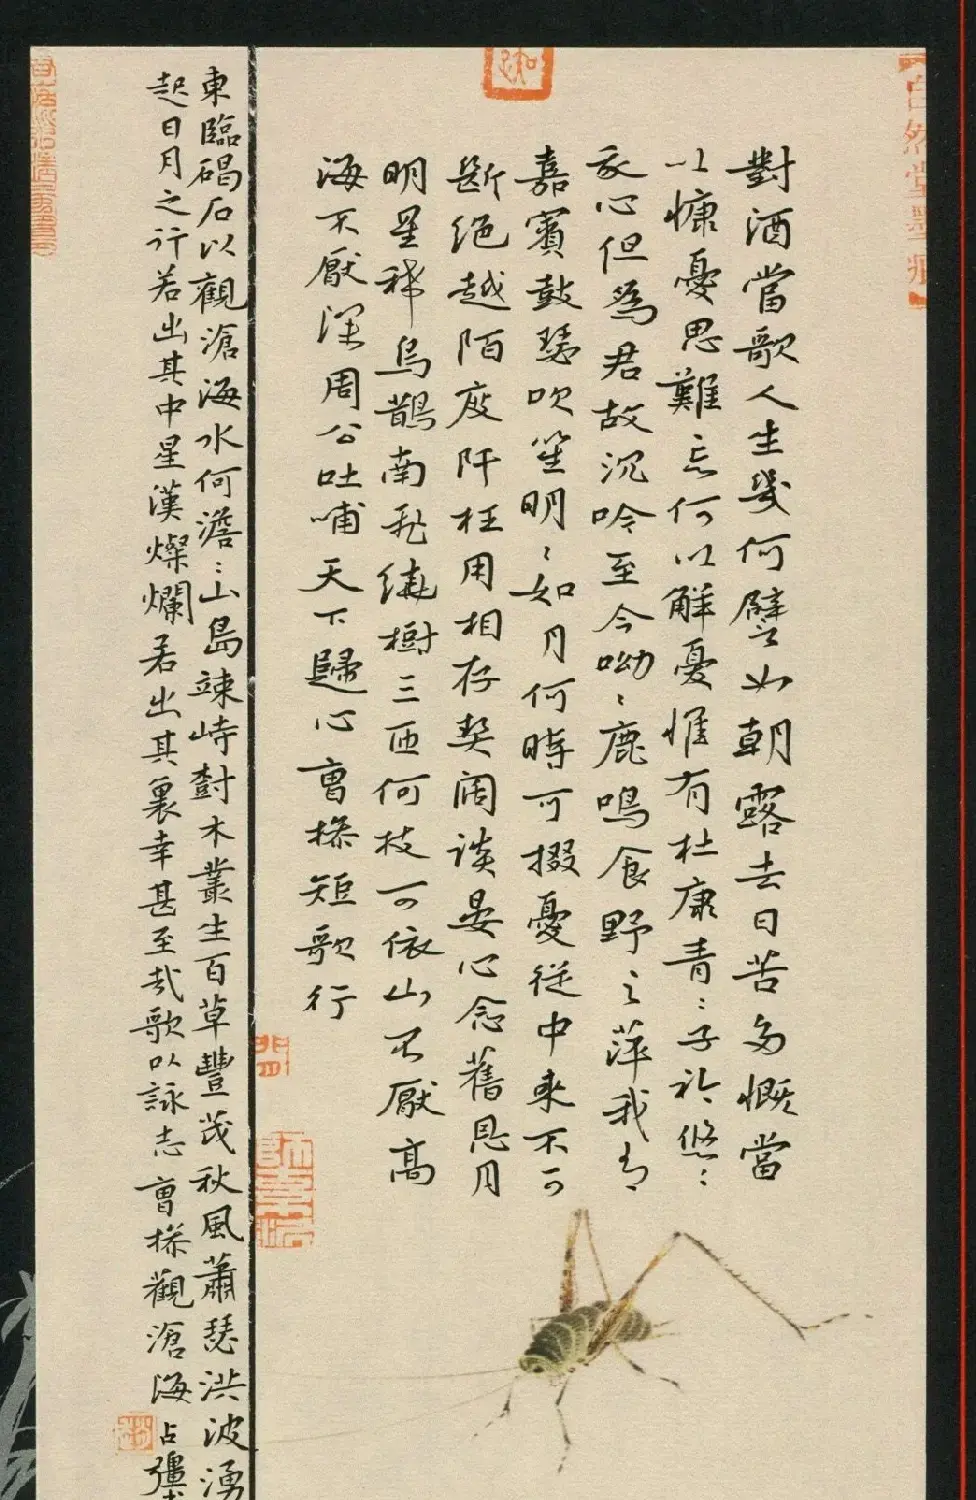 對酒當歌人生幾何譬如朝露去日苦多慨當
以慷憂思難忘何以解憂惟有杜康青〻子衿悠〻
我心但爲君故沉吟至今呦〻鹿鳴食野之萍我有
嘉賓鼓瑟吹笙明〻如月何時可掇憂從中來不可
斷絕越陌度阡枉用相存契闊談宴心念舊恩月
明星稀烏鵲南飛繞樹三匝何枝可依山不厭高
海不厭深周公吐哺天下歸心曹操短歌行
東臨碣石以觀滄海水何澹〻山島竦峙樹木叢生百草豐茂秋風蕭瑟洪波湧
起日月之行若出其中星漢燦爛若出其裏幸甚至哉歌以詠志曹操觀滄海占彊